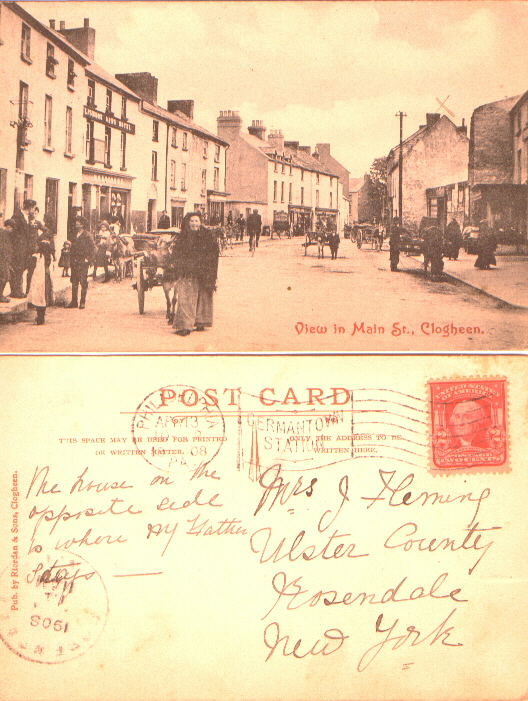 View in Main St., Clogheen.
POST CARD
PHILA
APR 13
08
PA
GERMANTOWN
STATION
THIS SPACE MAY BE USED FOR PRINTED
OR WRITTEN MATTER.
ONLY THE ADDRESS TO BE
WRITTEN HERE.
TWO CENTS
The house on the
opposite side
is where my Father
stays —
Mrs J Fleming
Ulster County
Rosendale
New York
Pub. by Riordan & Sons, Clogheen.
1908